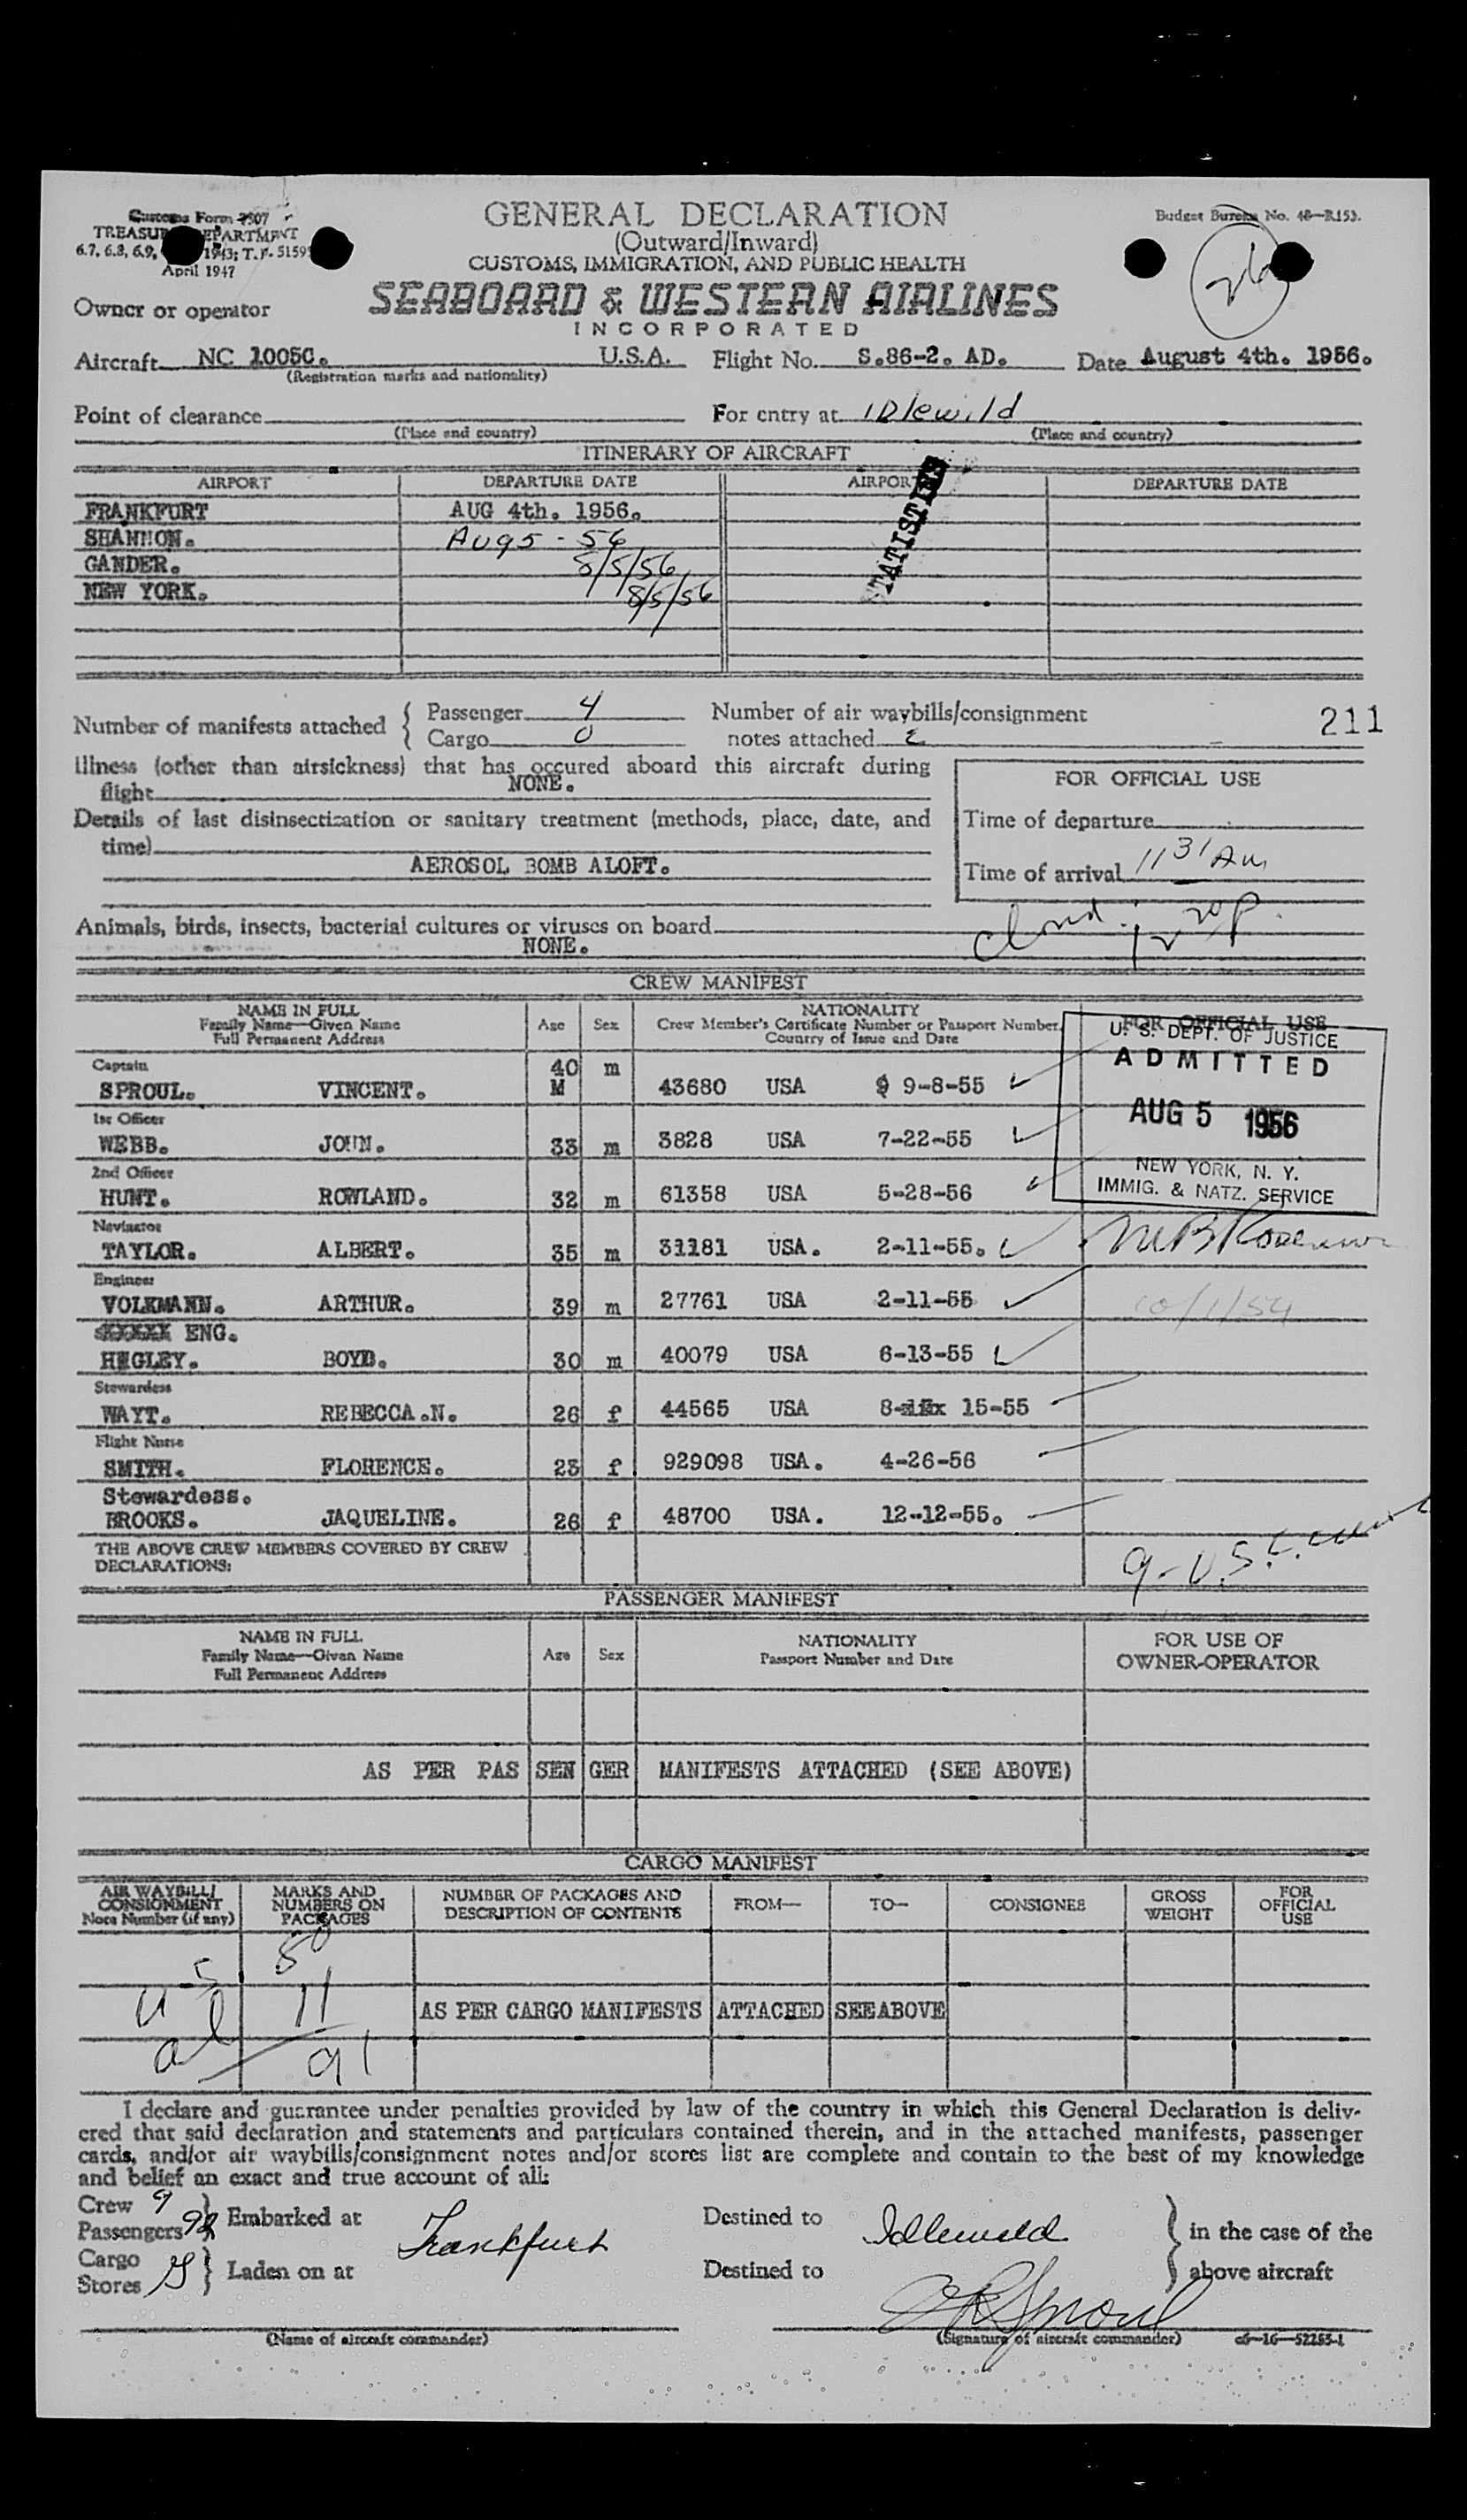 Customs Form 7507
TREASURY DEPARTMENT
6.7, 6.8, 6.9, 1943; T. D. 5159
April 1947
GENERAL DECLARATION
(Outward/Inward)
CUSTOMS, IMMIGRATION, AND PUBLIC HEALTH
Budget Bureau No. 48—R153.
Owner or operator
SEABOARD & WESTERN AIRLINES
INCORPORATED
Aircraft NC 1005C. U.S.A. Flight No. S.86-2. AD. Date August 4th. 1956.
(Registration marks and nationality)
Point of clearance For entry at IDlewild
(Place and country) (Place and country)
ITINERARY OF AIRCRAFT
AIRPORT DEPARTURE DATE AIRPORT DEPARTURE DATE
FRANKFURT AUG 4th. 1956.
SHANNON. Aug 5 - 56
GANDER. 8/5/56
NEW YORK. 8/5/56
Number of manifests attached { Passenger 4 Number of air waybills/consignment 211
Cargo 0 notes attached
Illness (other than airsickness) that has occured aboard this aircraft during
flight NONE.
FOR OFFICIAL USE
Details of last disinsectization or sanitary treatment (methods, place, date, and
time)
AEROSOL BOMB ALOFT.
Time of departure
Time of arrival 11 31 Am
Animals, birds, insects, bacterial cultures or viruses on board
NONE.
CREW MANIFEST
NAME IN FULL
Family Name—Given Name
Full Permanent Address
Age Sex
NATIONALITY
Crew Member's Certificate Number or Passport Number.
Country of Issue and Date
FOR OFFICIAL USE
U. S. DEPT. OF JUSTICE
ADMITTED
AUG 5 1956
NEW YORK, N. Y.
IMMIG. & NATZ. SERVICE
Captain
SPROUL. VINCENT. 40 M m 43680 USA 9-8-55
1st Officer
WEBB. JOHN. 33 m 3828 USA 7-22-55
2nd Officer
HUNT. ROWLAND. 32 m 61358 USA 5-28-56
Navigator
TAYLOR. ALBERT. 35 m 31181 USA. 2-11-55.
Engineer
VOLKMANN. ARTHUR. 39 m 27761 USA 2-11-55
10/1/54
ENG.
HEGLEY. BOYD. 30 m 40079 USA 6-13-55
Stewardess
WAYT. REBECCA.N. 26 f 44565 USA 8- 15-55
Flight Nurse
SMITH. FLORENCE. 23 f 929098 USA. 4-26-56
Stewardess.
BROOKS. JAQUELINE. 26 f 48700 USA. 12-12-55.
THE ABOVE CREW MEMBERS COVERED BY CREW
DECLARATIONS:
9 - U.S.C.
PASSENGER MANIFEST
NAME IN FULL
Family Name—Given Name
Full Permanent Address
Age Sex
NATIONALITY
Passport Number and Date
FOR USE OF
OWNER-OPERATOR
AS PER PAS SEN GER MANIFESTS ATTACHED (SEE ABOVE)
CARGO MANIFEST
AIR WAYBILL/
CONSIGNMENT
Note Number (if any)
MARKS AND
NUMBERS ON
PACKAGES
NUMBER OF PACKAGES AND
DESCRIPTION OF CONTENTS
FROM— TO— CONSIGNEE
GROSS
WEIGHT
FOR
OFFICIAL
USE
US 80
al 11
91
AS PER CARGO MANIFESTS ATTACHED SEE ABOVE
I declare and guarantee under penalties provided by law of the country in which this General Declaration is deliv-
ered that said declaration and statements and particulars contained therein, and in the attached manifests, passenger
cards, and/or air waybills/consignment notes and/or stores list are complete and contain to the best of my knowledge
and belief an exact and true account of all:
Crew 9
Passengers } Embarked at Frankfurt Destined to Idlewild } in the case of the
Cargo
Stores } Laden on at Destined to } above aircraft
(Name of aircraft commander) (Signature of aircraft commander) c6—16—52255-1